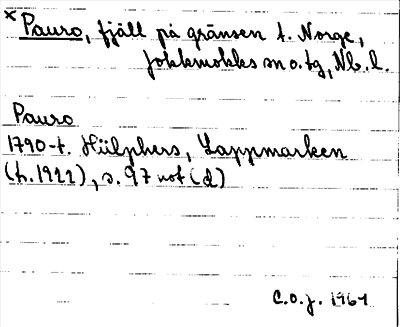 × Pauro, fjäll på gränsen t. Norge,
Jokkmokks sn o. tg, Nb. l.
Pauro
1790-t. Hülphers, Lappmarken
(tr. 1922), s. 97 not (d)
C.O.J. 1961